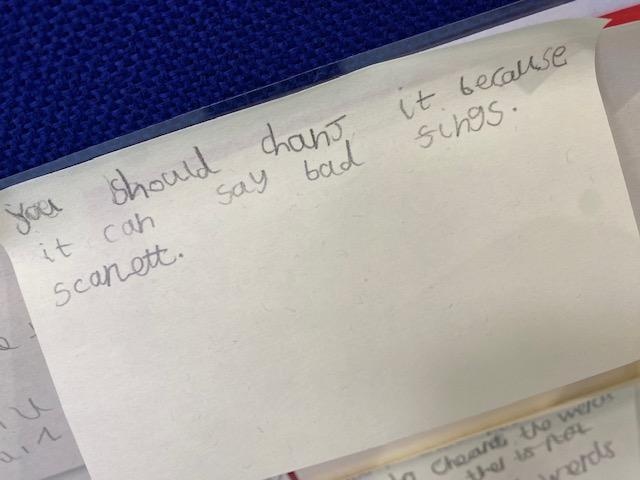 you should chanJ it because
it can say bad sings.
scarlett.
the werds
ther is not
werds